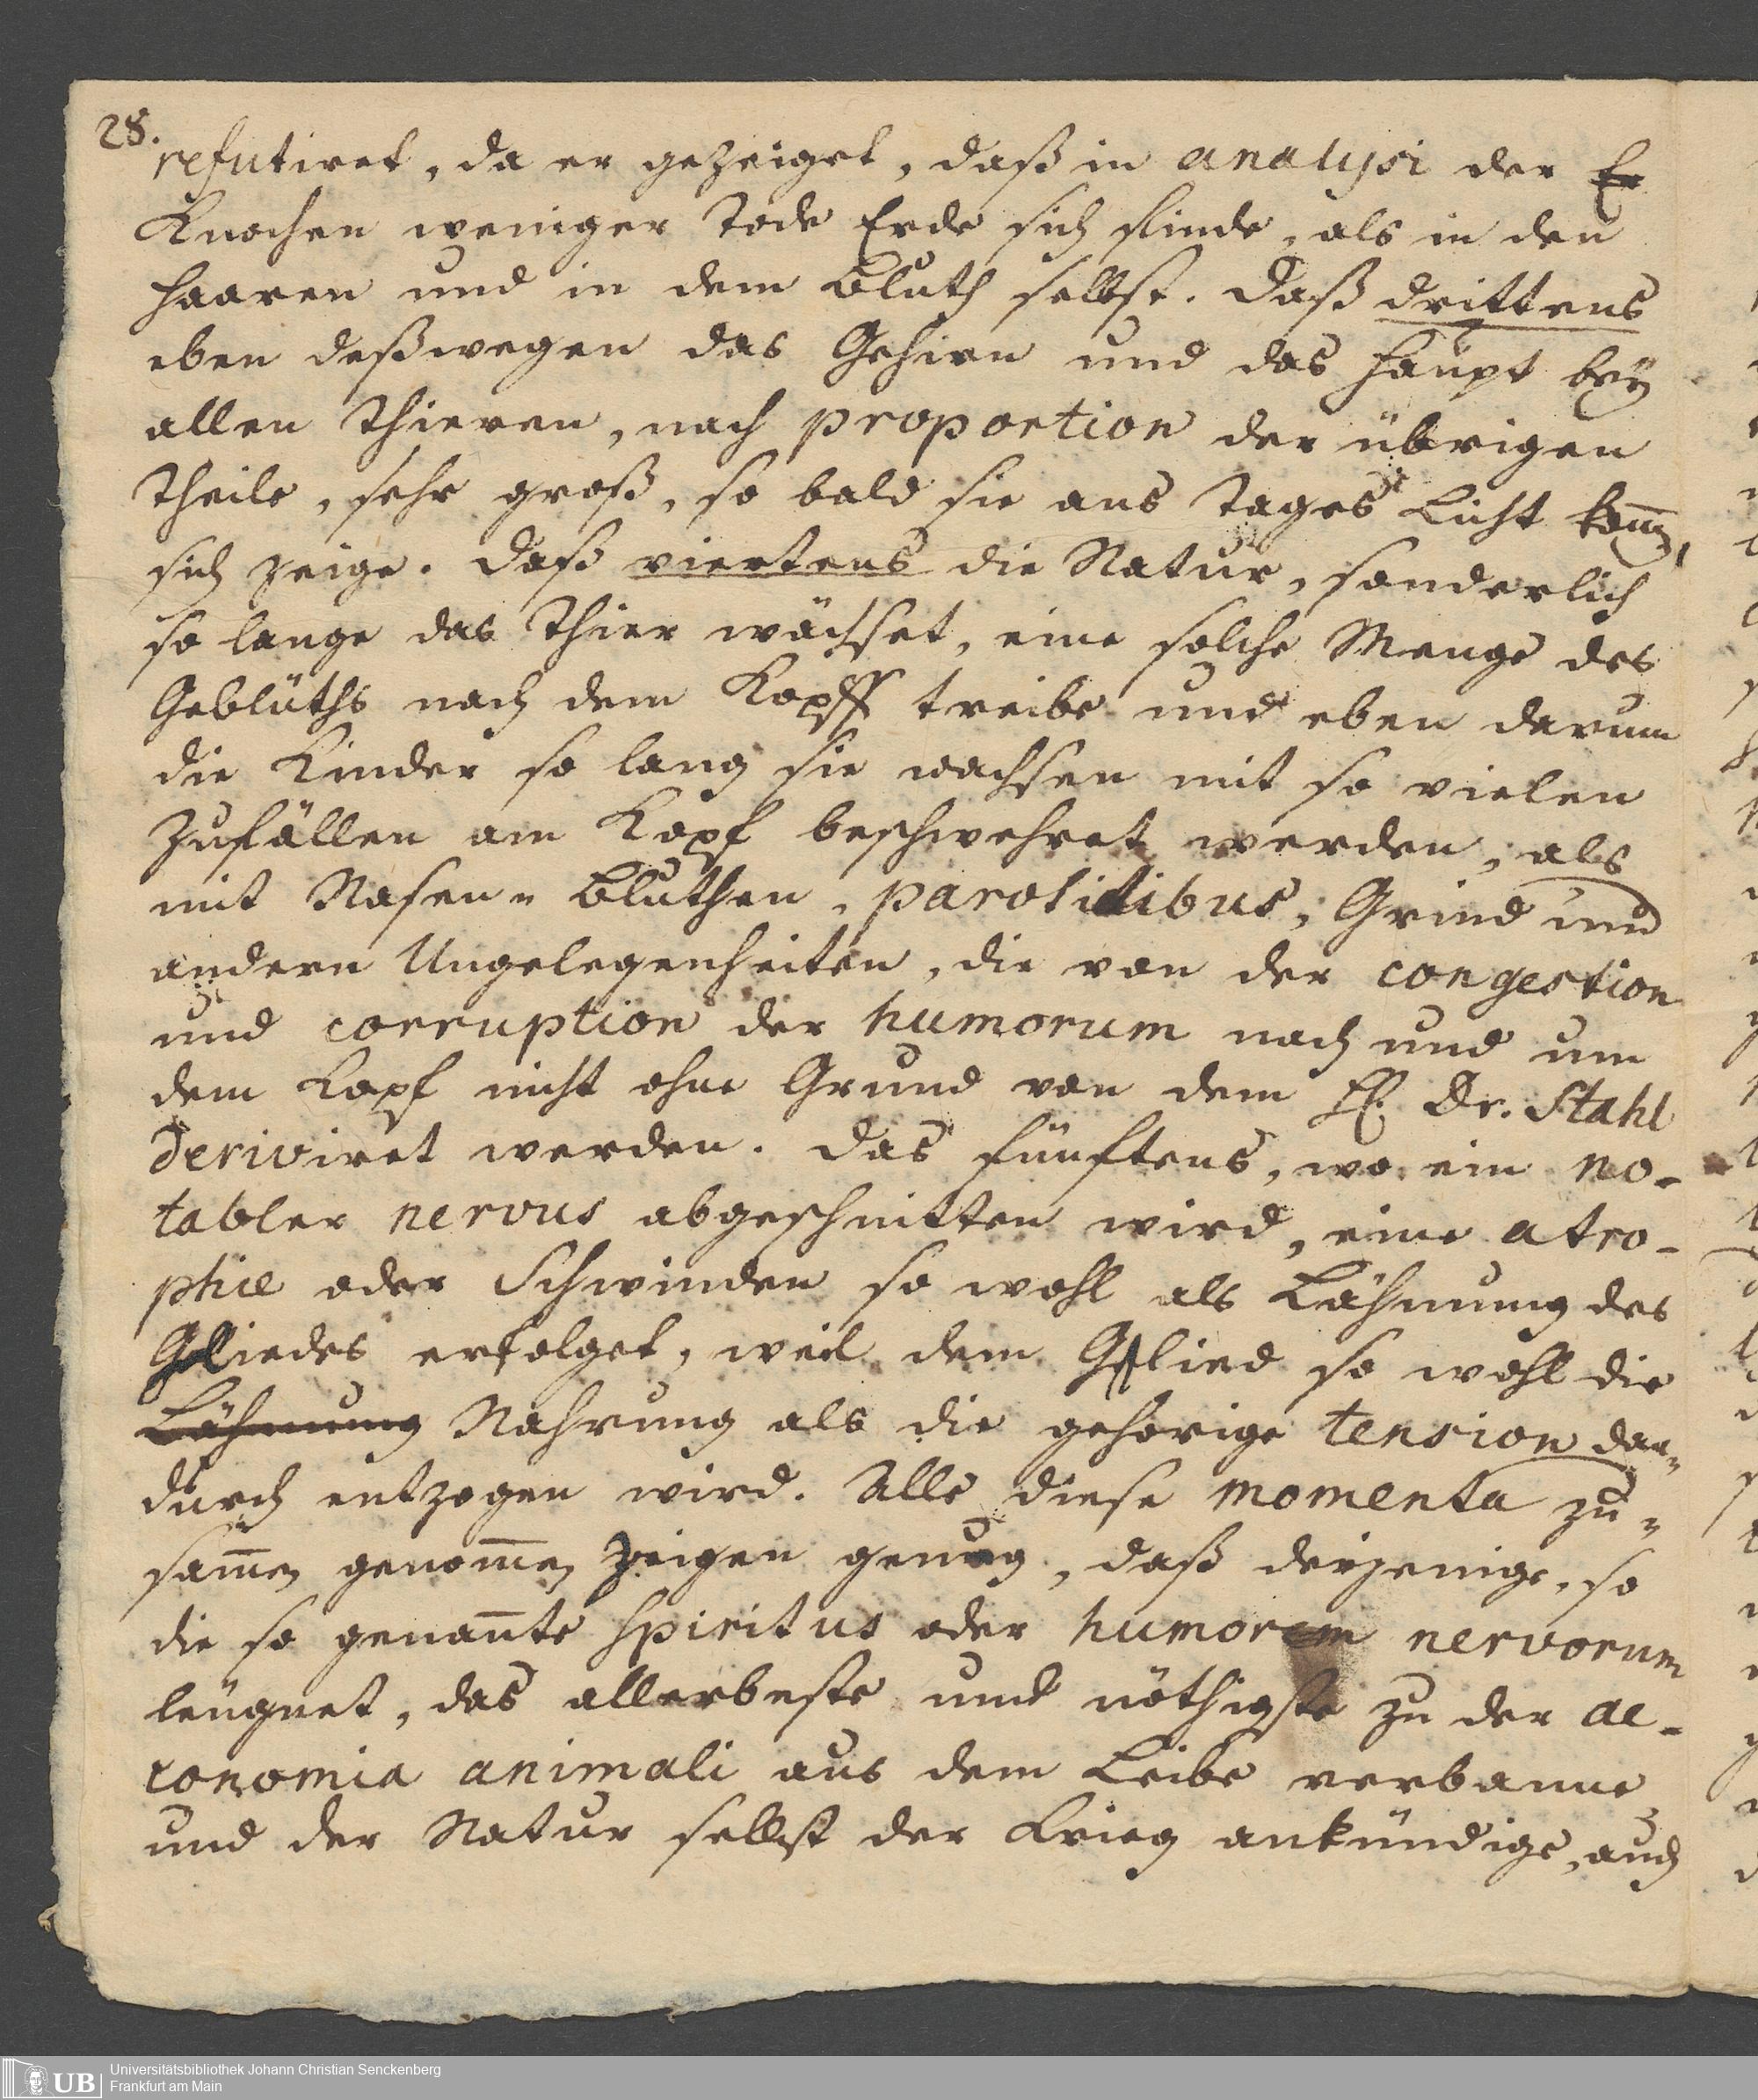 28.
refutiret, da er gezeiget, daß in analysi der Er
Knochen weniger Tode Erde sich finde, als in den
Haaren und in dem Bluth selbst. Daß drittens
eben deßwegen das Gehirn und das Haupt bey
allen Thieren, nach proportion der übrigen
Theile, sehr groß, so bald sie ans Tages Licht kom̅en,
sich zeige. Daß viertens die Natur, sonderlich
so lange das Thier wächset, eine solche Menge des
Geblüths nach dem Kopff treibe und eben darum
die Kinder so lang sie wachsen mit so vielen
Zufällen am Kopf beschwehret werden, als
mit Nasen-Bluthen, parotitibus, Grind und
andern Ungelegenheiten, die von der congestion
und corruption der humorum nach und um
dem Kopf nicht ohne Grund von dem H. Dr. Stahl
deriviret werden. Das fünftens, wo ein no-
tabler nervus abgeschnitten wird, eine atro-
phie oder Schwinden so wohl als Lähmung des
Gliedes erfolget, weil dem Glied so wohl die
Lähmung Nahrung als die gehörige tension dar-
durch entzogen wird. Alle diese momenta zu-
sam̅en genom̅en zeigen genug, daß derjenige, so
die so genan̅te spiritus oder humorem nervorum
leugnet, das allerbeste und nöthigste zu der ae-
conomia animali aus dem Leibe verbanne
und der Natur selbst der Krieg ankündige, auch
UB
Universitätsbibliothek Johann Christian Senckenberg
Frankfurt am Main